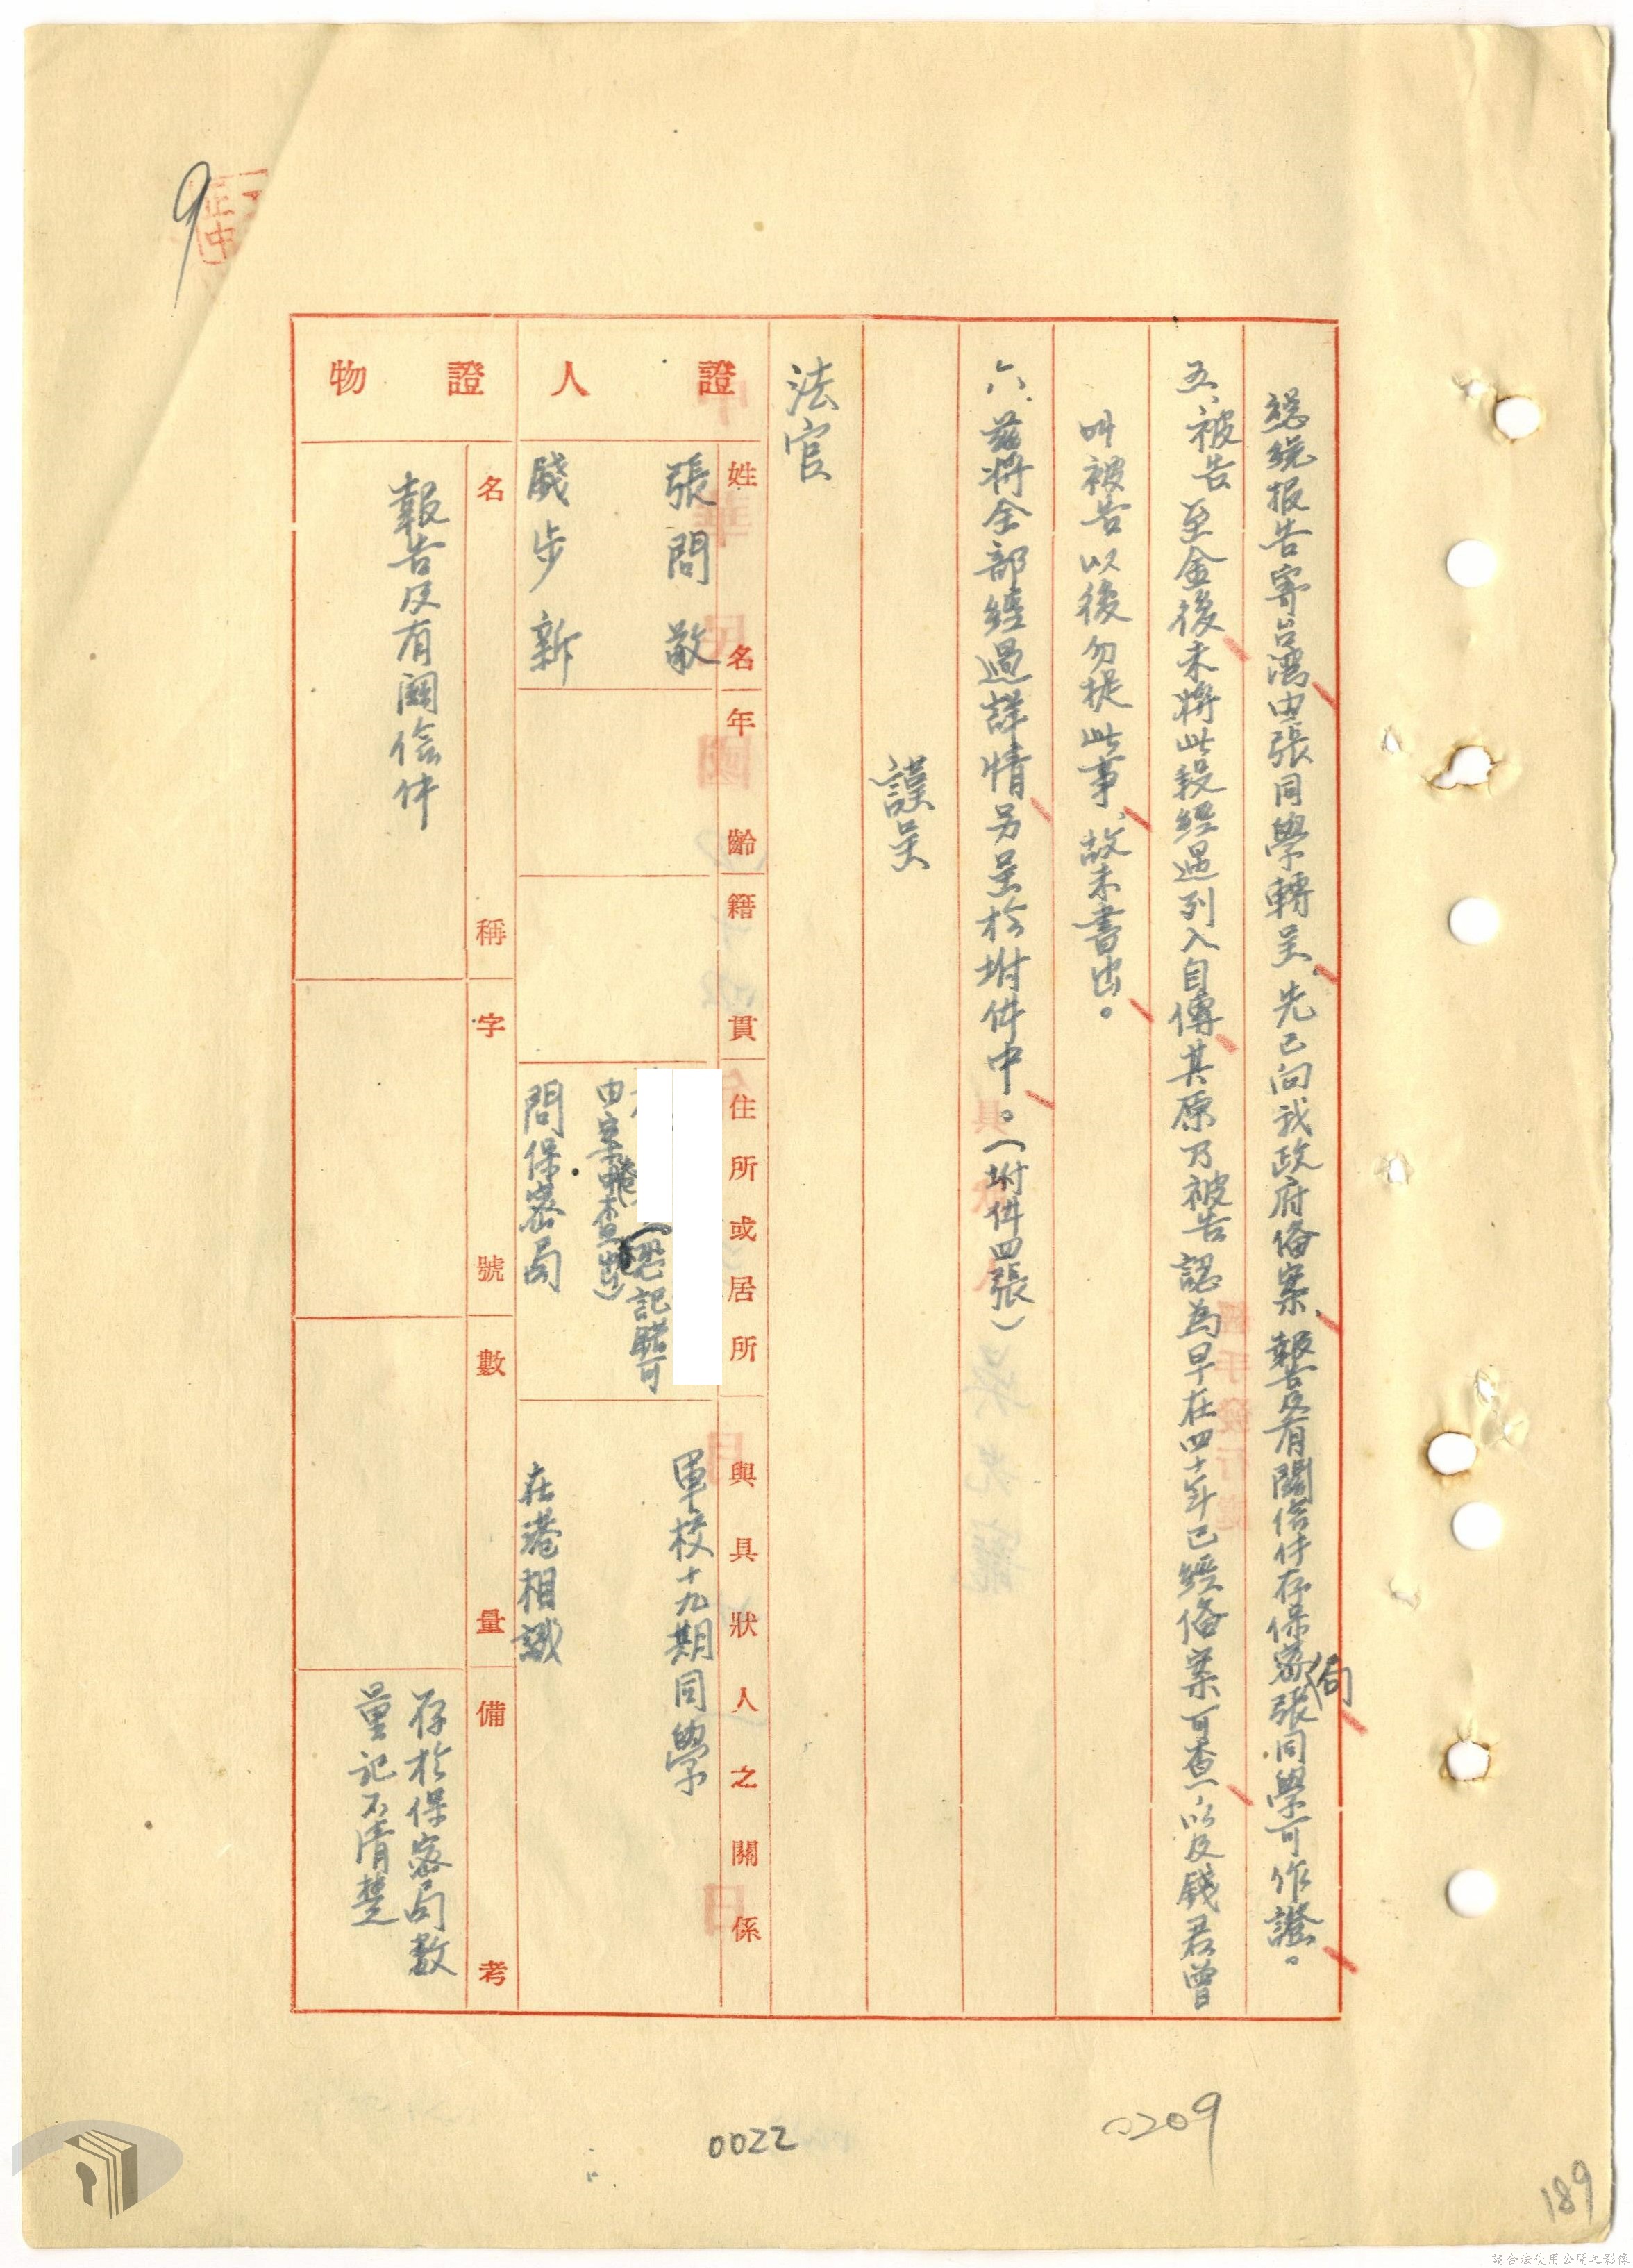 總統报告寄台灣由張同學轉呈、先已向我政府俻案、報告及有關信件存保密局張同學可作證。
五、被告至金後未將此段經過列入自傳其原乃被告認為早在四十年已經俻案可查，以及錢君曾
叫被告以後勿提此事、故未書出。
六、茲將全部經過詳情另呈於坿件中。（坿件四張）
謹呈
法官
證人
姓名
年齡
籍貫
住所或居所
與具狀人之關係
張問敬
（恐記錯可
由案中查出）
軍校十九期同學
錢步新
問保密局
在港相識
證物
名稱
字號
數量
備考
報告及有關信件
存於保密局數
量記不清楚
9
正中
0022
0209
189
請合法使用公開之影像